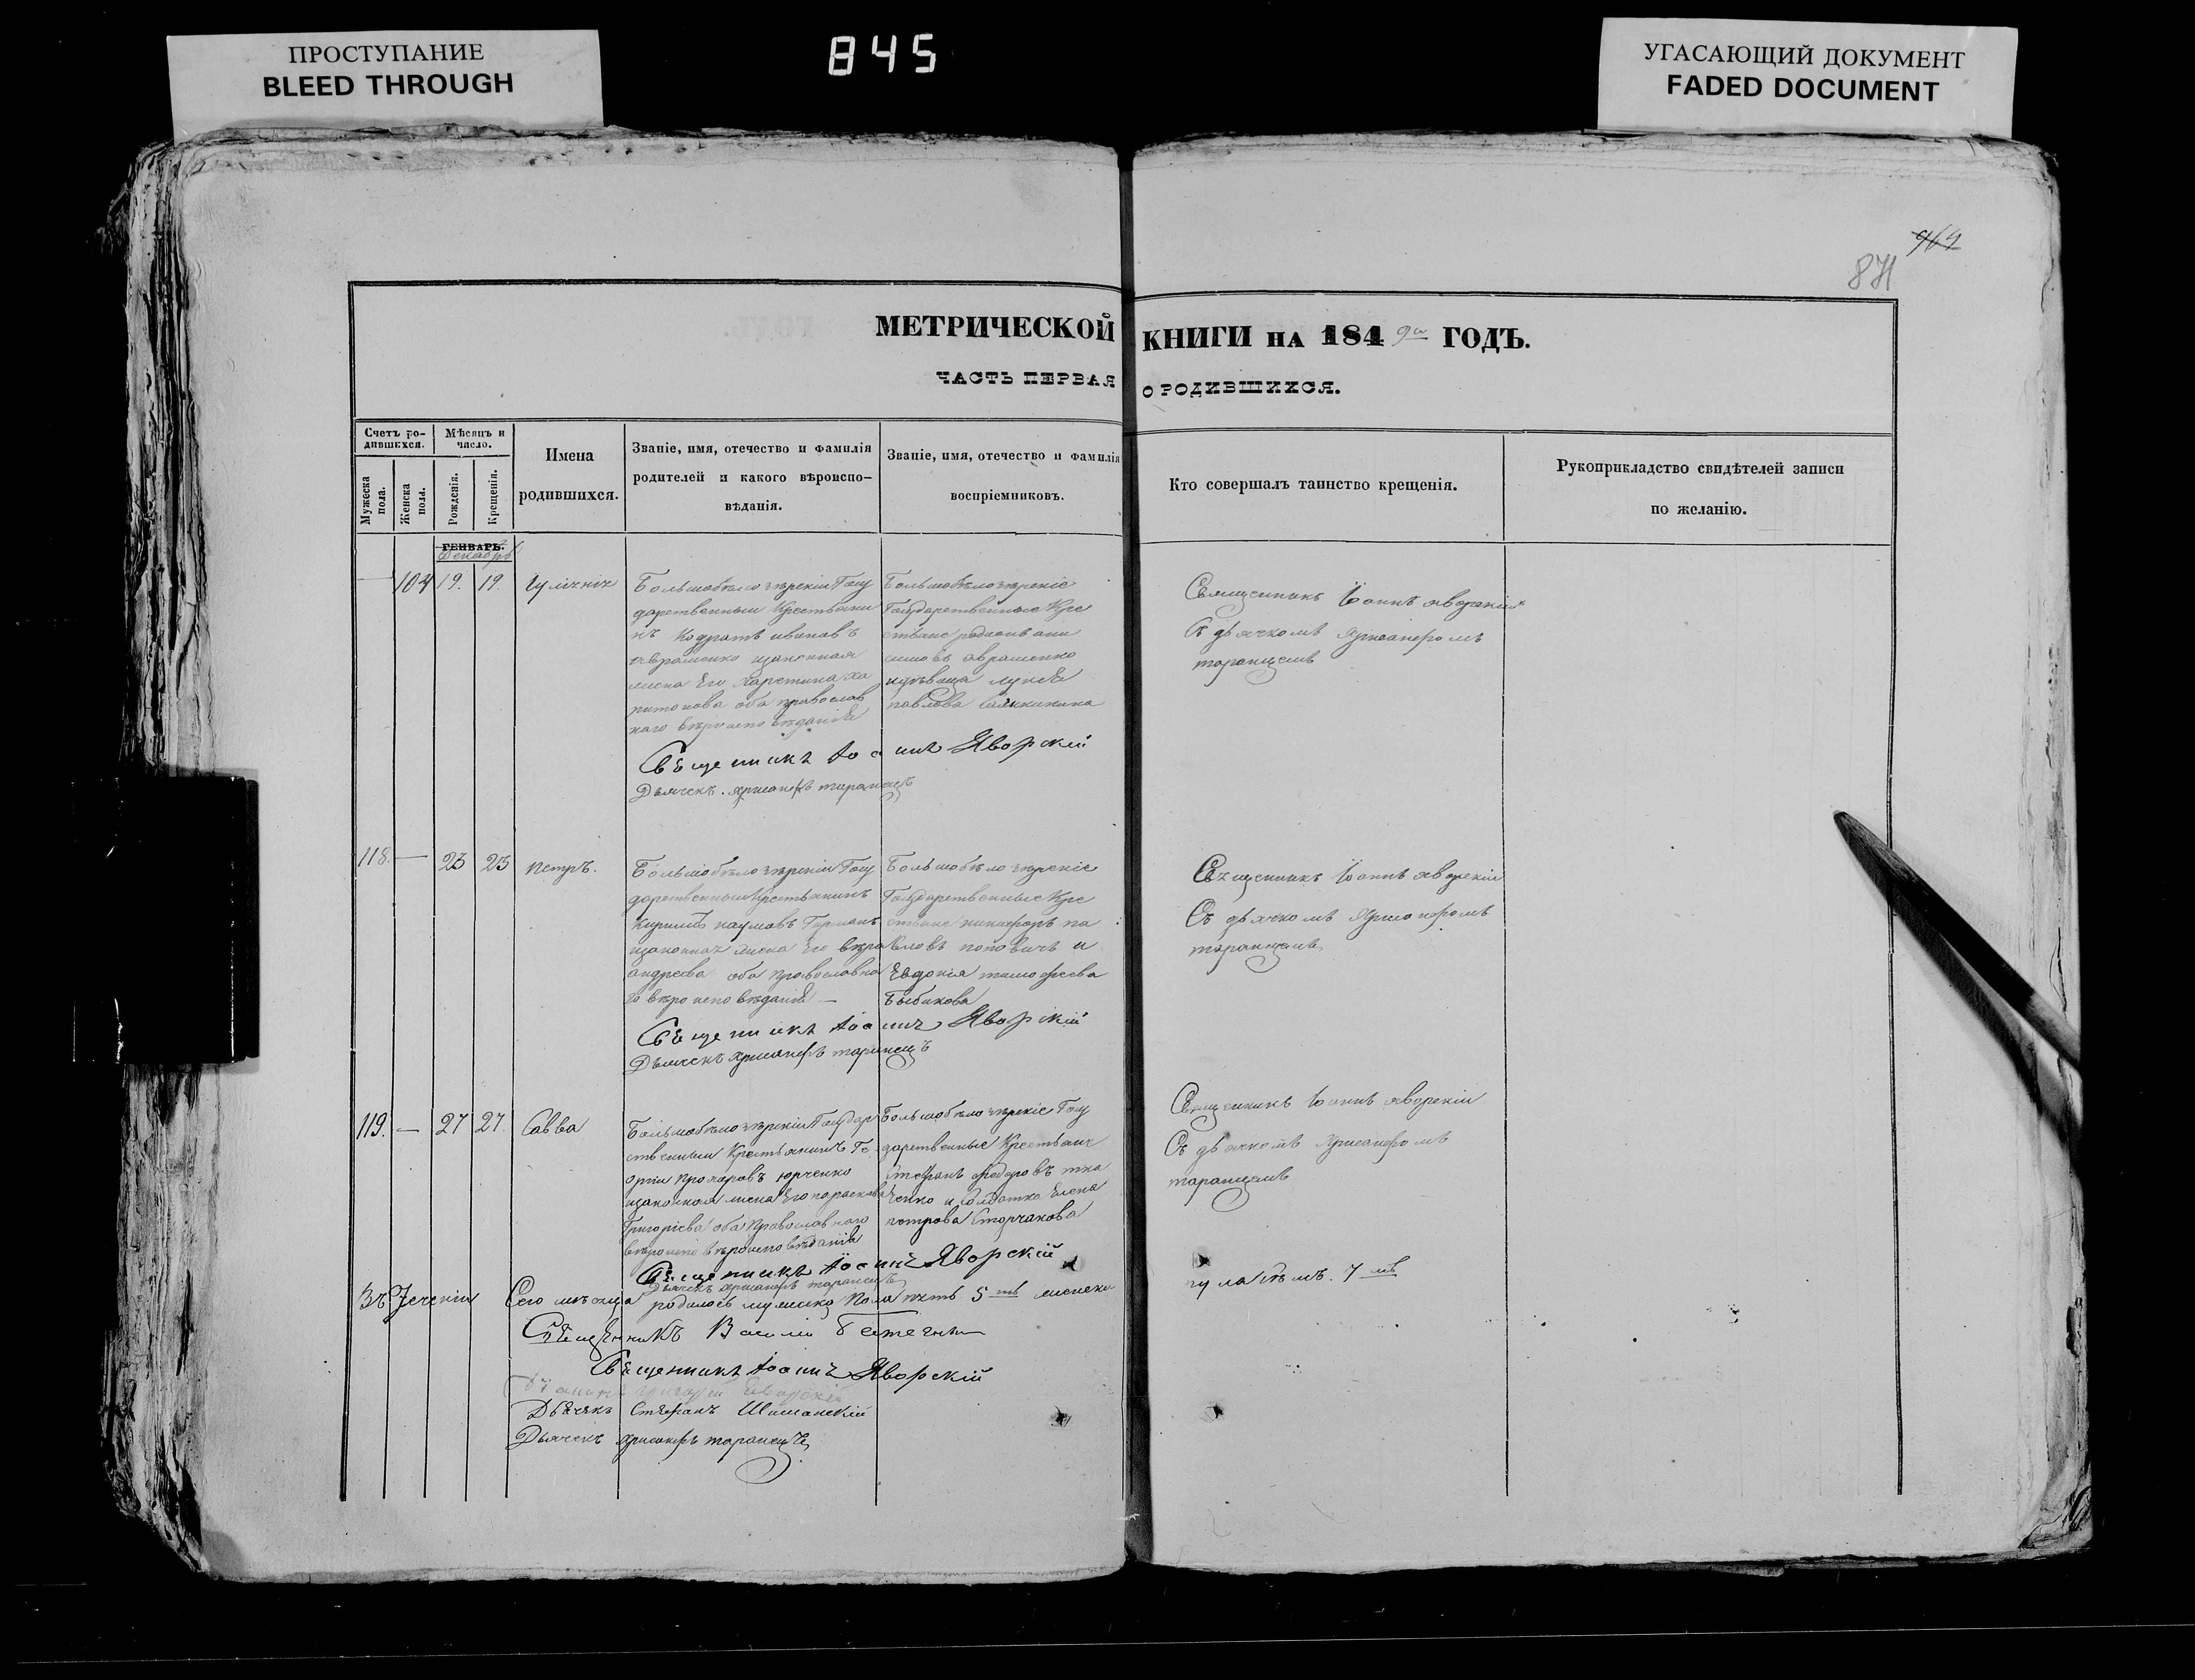 ПРОСТУПАНИЕ
BLEED THROUGH
845
УГАСАЮЩИЙ ДОКУМЕНТ
FADED DOCUMENT
964
871
МЕТРИЧЕСКОЙ КНИГИ НА 1849 ГОДЪ.
ЧАСТЬ ПЕРВАЯ О РОДИВШИХСЯ.
Счетъ ро-
дившихся.
Мужеска
пола.
Женска
пола.
Мѣсяцъ и
число.
Рожденія.
Крещенія.
Имена
родившихся.
Званіе, имя, отечество и фамилія
родителей и какого вѣроиспо-
вѣданія.
Званіе, имя, отечество и фамилія
воспріемниковъ.
Кто совершалъ таинство крещенія.
Рукоприкладство свидѣтелей записи
по желанію.
ГЕНВАРЬ.
Декабрь
104 19. 19.
Большобѣлозѣрскій Госу
дарственный Крестьяни
нъ Кодратъ ивановъ
авраменко изаконная
жена Его Харетина ха
ритонова оба православ
наго вѣроисповѣданія
Большобѣлозѣрскіе
Государственные Кре
стьяне
авраменко
павлова
Священникъ Іоаннъ яворскій
Съ дьячкомъ Хрисанфомъ
таранцемъ
Священникъ Іоаннъ Яворскій
Дьячекъ хрисанфъ таранецъ
118. — 23 23 петръ.
Большобѣлозѣрскій Госу
дарственный Крестьянинъ
Кирилъ наумовъ Германъ
изаконная жена Его вѣра
андреева оба православна
го вѣроисповѣданія —
Большобѣлозѣрскіе
Государственные Кре
стьяне никифоръ па
вловъ поповичъ и
Евдокія тимофеева
Бибикова
Священникъ Іоаннъ яворскій
Съ дьячкомъ Хрисанфомъ
таранцемъ
Священникъ Іоаннъ Яворскій
Дьячекъ хрисанфъ таранецъ
119. — 27 27. Савва
Большобѣлозѣрскій Государ
ственный Крестьянинъ Ге
оргій прохоровъ юрченко
изаконная жена Его параскева
Григоріева оба православнаго
вѣроиспо вѣроисповѣданія
Большобѣлозѣрскіе Госу
дарственные Крестьяне
Стефанъ Федоровъ тка
ченко и Солдатка Елена
петрова Сторчакова
Священникъ Іоаннъ яворскій
Съ дьячкомъ Хрисанфомъ
таранцемъ
Священникъ Іоаннъ Яворскій
Дьячекъ хрисанфъ таранецъ
Въ теченіи Сего мѣсяца родилось мужеска пола пять 5ть женска
Священникъ Василій
Священникъ Іоаннъ Яворскій
Дьячекъ Стефанъ Шиманскій
Дьячекъ хрисанфъ таранецъ